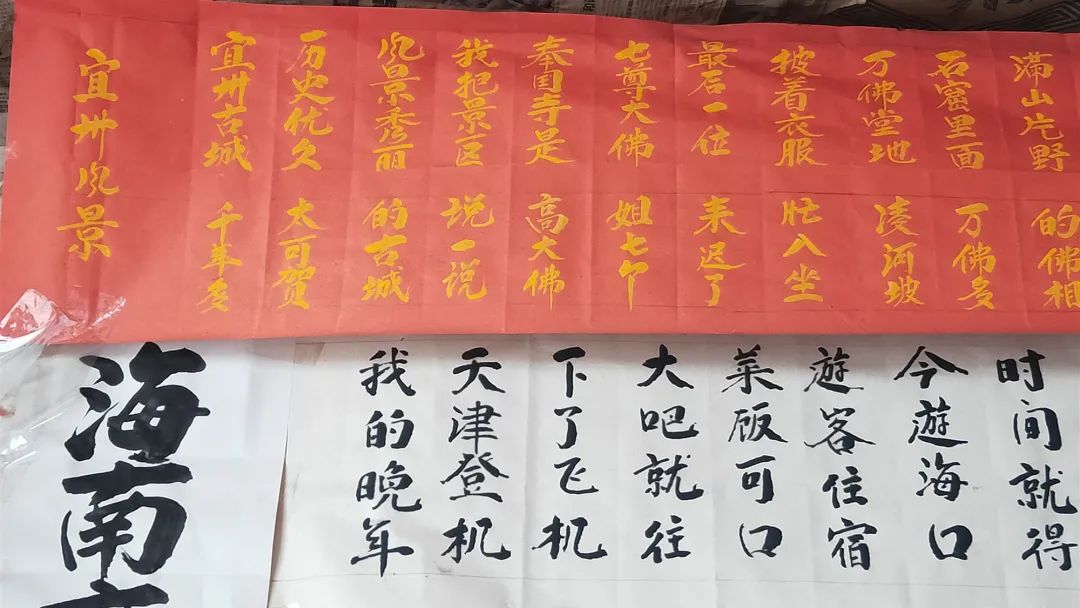 宜州风景
宜州古城 千年多
历史优久 大可贺
风景秀丽 的古城
我把景区 说一说
奉国寺是 高大佛
七尊大佛 姐七个
最后一位 来迟了
披着衣服 忙入坐
万佛堂地 凌河坡
石窟里面 万佛多
满山片野 的佛相
海南
我的晚年
天津登机
下了飞机
大吧就往
菜饭可口
遊客住宿
今遊海口
时间就得